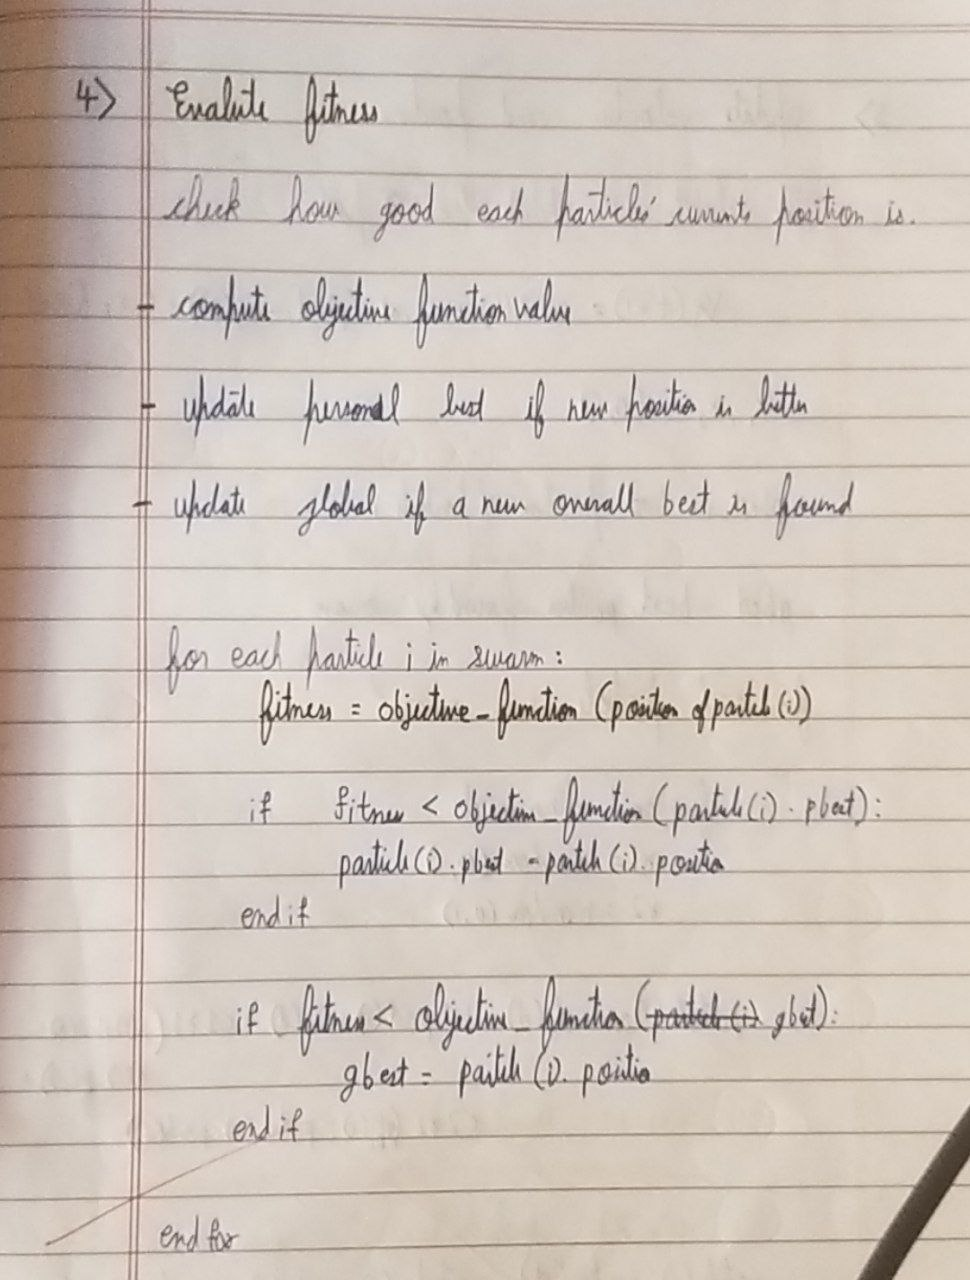 4> Evalute fitness
check how good each particles' currents position is.
- compute objective function value
- update personal best if new position is better
- update global if a new overall best is found
for each particle i in swarm:
fitness = objective_function (position of particle (i))
if fitness < objective_function (particle(i).pbest):
particle(i).pbest = particle(i).position
end if
if fitness < objective_function (particle(i) gbest):
gbest = particle (i). position
end if
end for